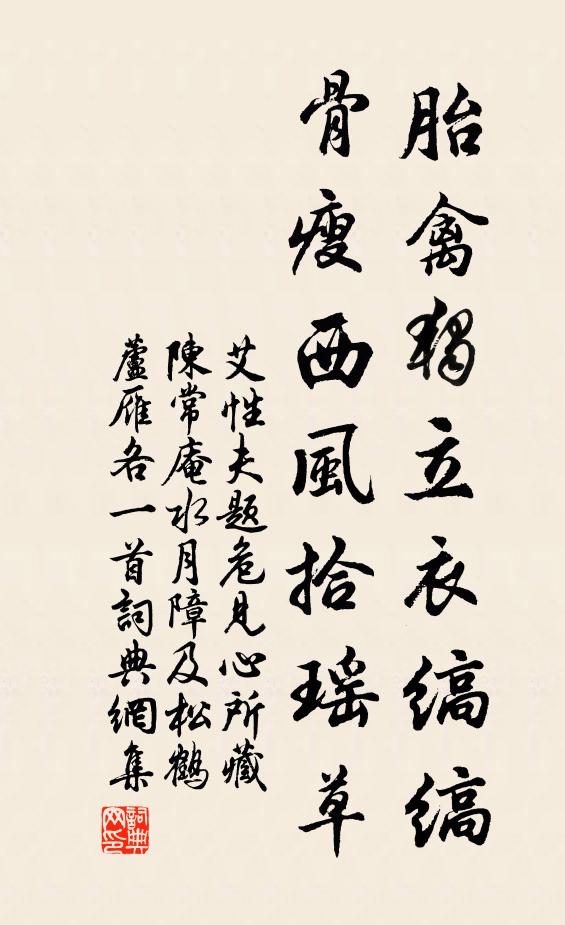 胎禽獨立衣縞縞
骨瘦西風拾瑤草
艾性夫題危見心所藏
陳常庵水月障及松鶴
蘆雁各一首詞典網集
詞典網印